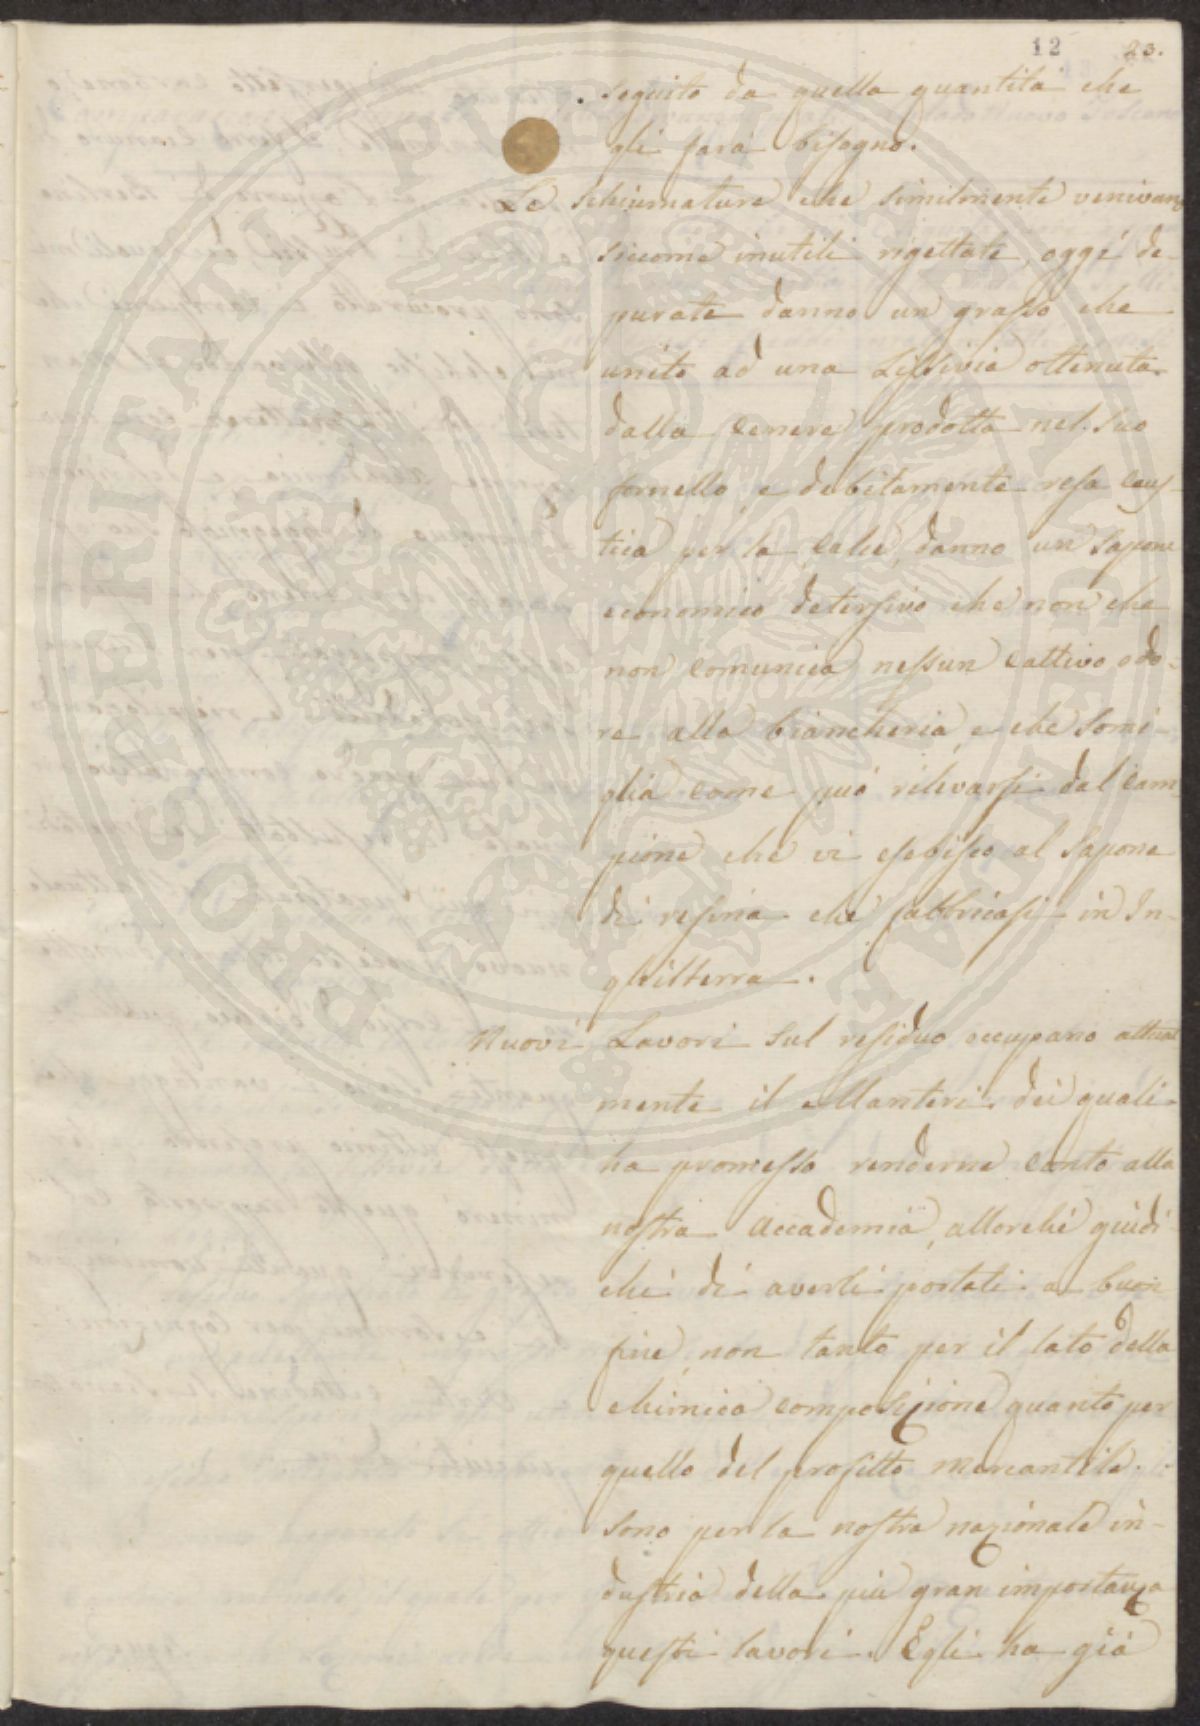 12 23.
seguito da quella quantità che
gli farà bisogno.
Le schiumature che similmente venivano
siccome inutili rigettate, oggi de-
purate danno un grasso che
unito ad una Lissivia ottenuta
dalla Cenere prodotta nel suo
fornello, e debitamente resa Caus-
tica per la Calce, danno un Sapone
economico detersivo che non che
non comunica nessun cattivo odo-
re alla biancheria, e che somi-
glia come può rilevarsi dal Cam-
pione che vi esebisco al Sapone
di resina che fabbricasi in In-
ghilterra.
Nuovi Lavori sul residuo occupano attual
mente il Manteri, dei quali
ha promesso renderne Conto alla
nostra Accademia, allorché giudi-
chi di averli portati a buon
fine, non tanto per il lato della
chimica composizione quanto per
quello del profitto mercantile.
Sono per la nostra nazionale in-
dustria della più gran importanza
questi lavori. Egli ha già
PROSPERITATI PUBLICAE AUGENDAE